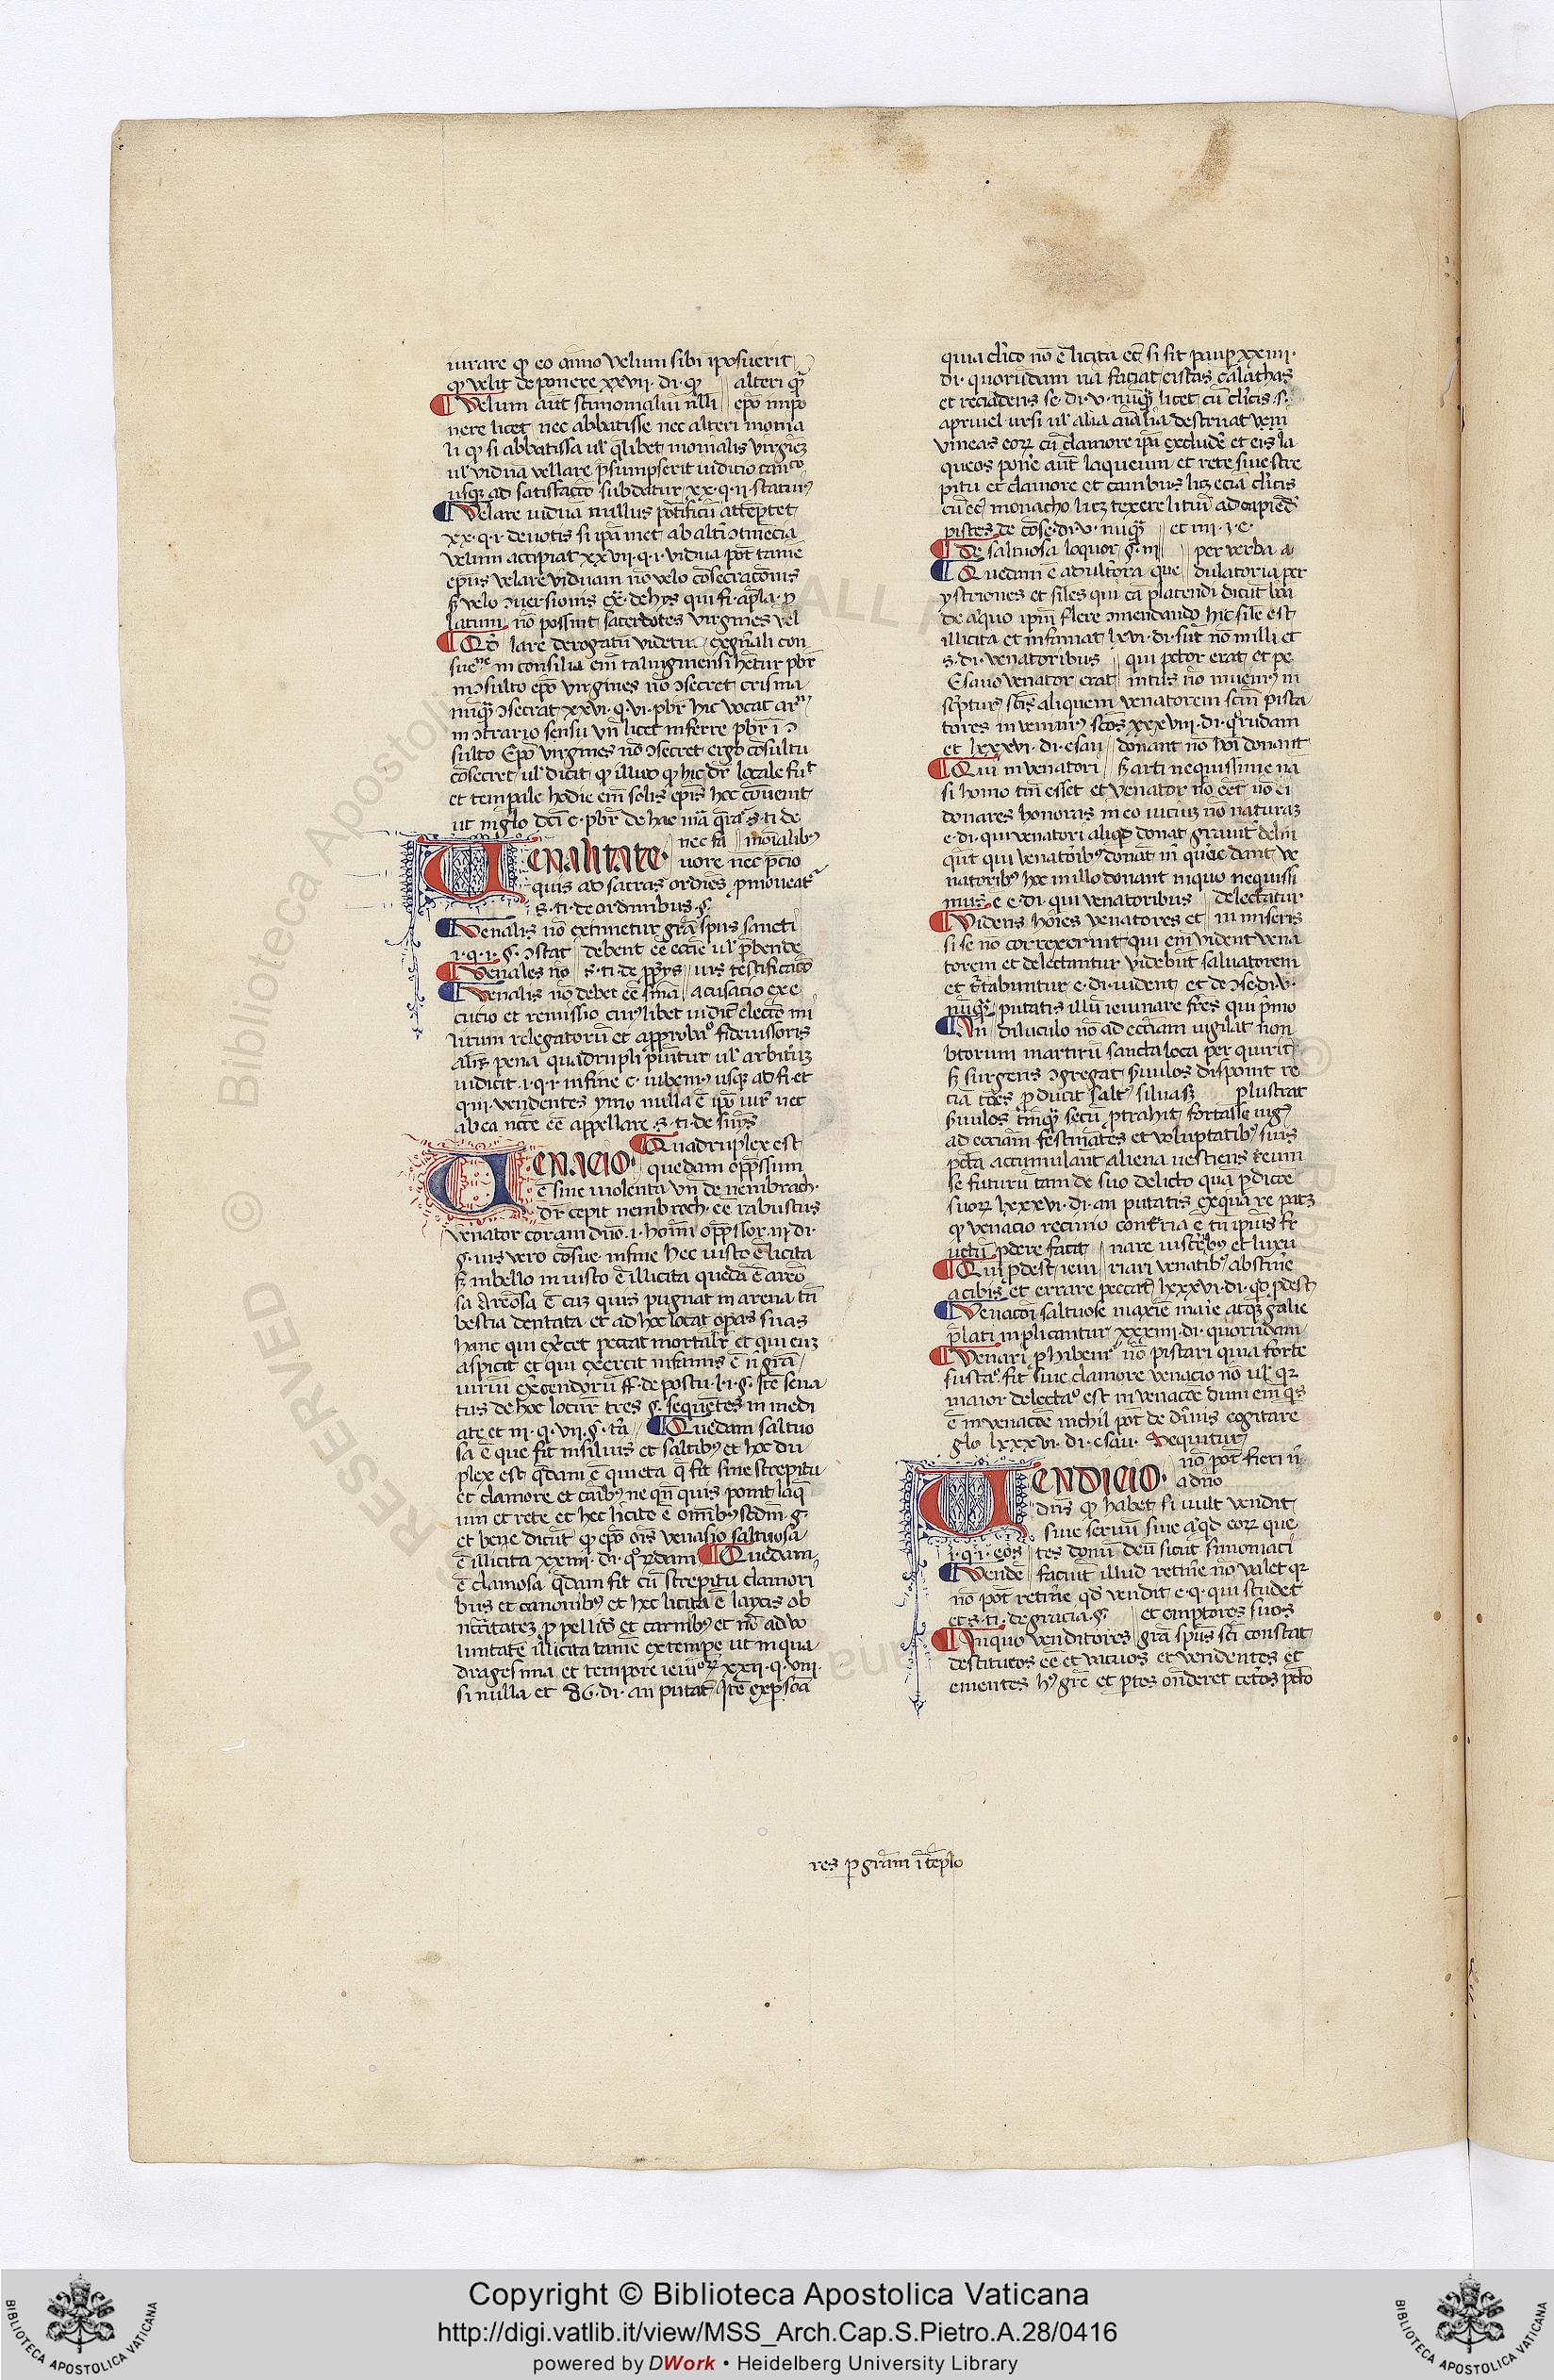 iurare qͥ eo anno velum sibi īposuerit
qͥ velit deponere xxvii· di· qͥ alteri
Velum aut̄ sc̄imonialiū nlli ep̄o impo
nere licet nec abbatisse nec alteri monia
li qͥ si abbatissa ul' q̄libet monialis virginē
ul' vidua vellare p̄sumpserit iuditio
usq; ad satisfactō subdatur xx·q·ii·statuim9
Velare viduā nullus pōtificū attēptet
xx·q·i·devotis si ipā met ab alt'i
velum accipiat xxvii·q·i·vidua pōt tamē
ep̄us velare viduam nō velo cōsecracōnis
velo ɔversionis ex̄·de hys qui fi·
latum nō possint sacerdotes virgines vel
lare derogatū videtur
in consilia em̄
inɔsulto ep̄o virgines nō ɔsecret crisma
nūq̄ ɔsecrat xxvi·q·vi·pbr̄ hic vocat
in ɔtrario sensu vn̄ licet inferre pbr̄
sulto Ep̄o virgines nō ɔsecret ergo cōsultu
cōsecret ul' dicit qͥ illud qͥ hic dr̄ locale fuit
et tempale hodie em̄ solis ep̄is hoc cōvenit
nec fa monialib9
Uenalitate· vore nec p̄cio
quis ad sacros ordies p̄moveat
s·ti·de ordinibus·
Venalis nō extimetur gr̄a sp̄us sancti
i·q·i·§·ɔstat debent eē eccīe ul' p̄bende
Venales nō s·ti·de
Venalis nō debet eē s̄nīa acusacio exe
cucio et remissio
litum relegatorū et approba fideiussoris
aliis pena quadrupli
iudicii·i·q·i·in fine c·iubem9 usq; ad fi·et
q·iii·vendentes ymo nulla ē ipō iur̄ nec
ab ea ncc̄e eē appellare s·ti·de
Quadruplex est
Uenacio· quedam opp̄ssiva
ē sive violenta vn̄ de nembrach·
dr̄ cepit nembroch eē rabustus
venator coram dn̄o·i·homi͞m opp̄ssor·
§·ius vero cōsue·in fine hec iusto ē licita
in bello iniusto ē illicita quedā ē areō
sa Areōsa ē cuȝ quis pugnat in arena cū
bestia dentata et ad hoc locat opas suas
hanc qui ex̄cet peccat mortalit̄ et qui euȝ
aspicit et qui exercet infamis ē
iuriū
tus de hoc locūr tres §·sequentes in medi
ate et iii·q·vii·§·tria Quedam saltuo
sa ē que fit in silvis et saltib9 et hoc du
plex est q̄dam ē quieta q̄ fit sine strepitu
et clamore et canib9 ne qn̄ quis ponit laq̄
um et rete et hec licite ē omīb9
et bene dicūt qͥ ep̄o ois venasio saltuosa
ē illicita xxiiii·di·qͦrdam Quedam
ē clamosa q̄dam fit cū strepitu clamori
bus et canonibus et hec licita ē laycis ob
nc̄citateȝ p̄ pellis et carnib9 et nō ad vo
luntatē illicita tamē ex tempe ut in qua
dragesima et tempore ieiūoȝ xxii·q·viii·
si nulla et 86·di·an putat Itē ex p̄sōa
quia cl'ico nō ē licita et̄ si sit paup xxiiii·
di·quorūdam nā faciat cistas calathas
et reciadens se·di·v·nūq̄ licet cū cl'icis·
apri vel ursi ul' alia aīalia destruat
vineas eorȝ cū clamore ipā exclude et eis la
queos pon'e aut laqueum et rete sine stre
pitu et clamore et canibus licȝ eciā cl'icis
monacho licȝ texere litiū ad capiēd'
pisces de cōse·di·v·nūq̄ et
De saltuosa loquor §·iii per verba a
Quedam ē adul'tora que dulatoria per
ystriones et siles qui cā placendi dicūt
de aliquo ipm̄ flere ɔmendando hic sile est
illicita et infamat lxvi·di·sūt nō nulli et
s·di·venatoribus qui p̄ctor erat et pe
Esauo venator erat intus nō invenim9 in
sc̄riptur' sc̄is aliquem venatorem scm̄ pisca
tores invenimus scōs xxxviii·di·q'rūdam
et lxxxvi·di·esau donant nō hōi donant
Qui in venatori arti nequissime nā
si homo tm̄ esset et venator nō eēt nō ei
donares honoras in eo viciuȝ nō naturaȝ
e·di·qui venatori aliqd donat gravit' delin
qūt qui venatorib9 donāt dant ve
natorib9 hoc nullo donant in quo nequissi
mus e e·di·qui venatoribus delectatur
Videns hoīes venatores et in miseris
si se nō correxerint qui em̄ vident vena
torem et delectantur videbūt salvatorem
et tristabuntur e·di·vident et de ɔse·di·v·
nūq̄ putatis illū ieiunare fr̄es qui p̄mo
An diluculo nō ad eccl'iam vigilat nō
btorum martirū sancta loca per quirit
surgens ɔgregat s'vulos disponit re
cia p̄ ducit salt9 silvasȝ plustrat
s'vulos secū ptrahit fortasse
ad eccl'iam festinātes et voluptatib9 suis
pcta accumulant aliena nescens reum
se futurū tam de suo delicto quā p̄dicōe
suorȝ lxxxvi·di·an putatis ex qua re patȝ
qͥ venacio
pdere facit nare uiscerib9 et luxu
Quid p̄dest ieiu riari venatib9 abstin'e
a cibis et errare peccatis lxxxvi·di·qd p̄dest
Venacōi saltuose maxie
p̄lati inplicantur xxxiiii·di·quorūdam
Venari p̄hibent' nō piscari quia forte
susta fit sine clamore venacio nō ul' qr
maior delecta est in venacōe dum em̄ qs
ē in venacōe nichil pōt de divinis cogitare
glo lxxxvi·di·esau· Sequitur
nō pōt fieri
Uendicio· a dno
dn̄s qͥ habet si vult vendit
sive servū sive aliqd eorȝ que
i·q·i·eos tes domū dei sicut simoniaci
Vende faciūt illud retin'e nō valet qr
nō pōt retin'e qd vendit e·q·qui studet
et s·ti·de gracia·§· et emptores suos
In quo venditores gr̄a sp̄us sc̄i constat
destitutos eē et vacuos et vendentes et
ementes h9 gr̄e et p̄tes ōnderet
res p̄ gram ī tēplo
Copyright © Biblioteca Apostolica Vaticana
http://digi.vatlib.it/view/MSS_Arch.Cap.S.Pietro.A.28/0416
powered by DWork • Heidelberg University Library
BIBLIOTECA APOSTOLICA VATICANA
BIBLIOTECA APOSTOLICA VATICANA